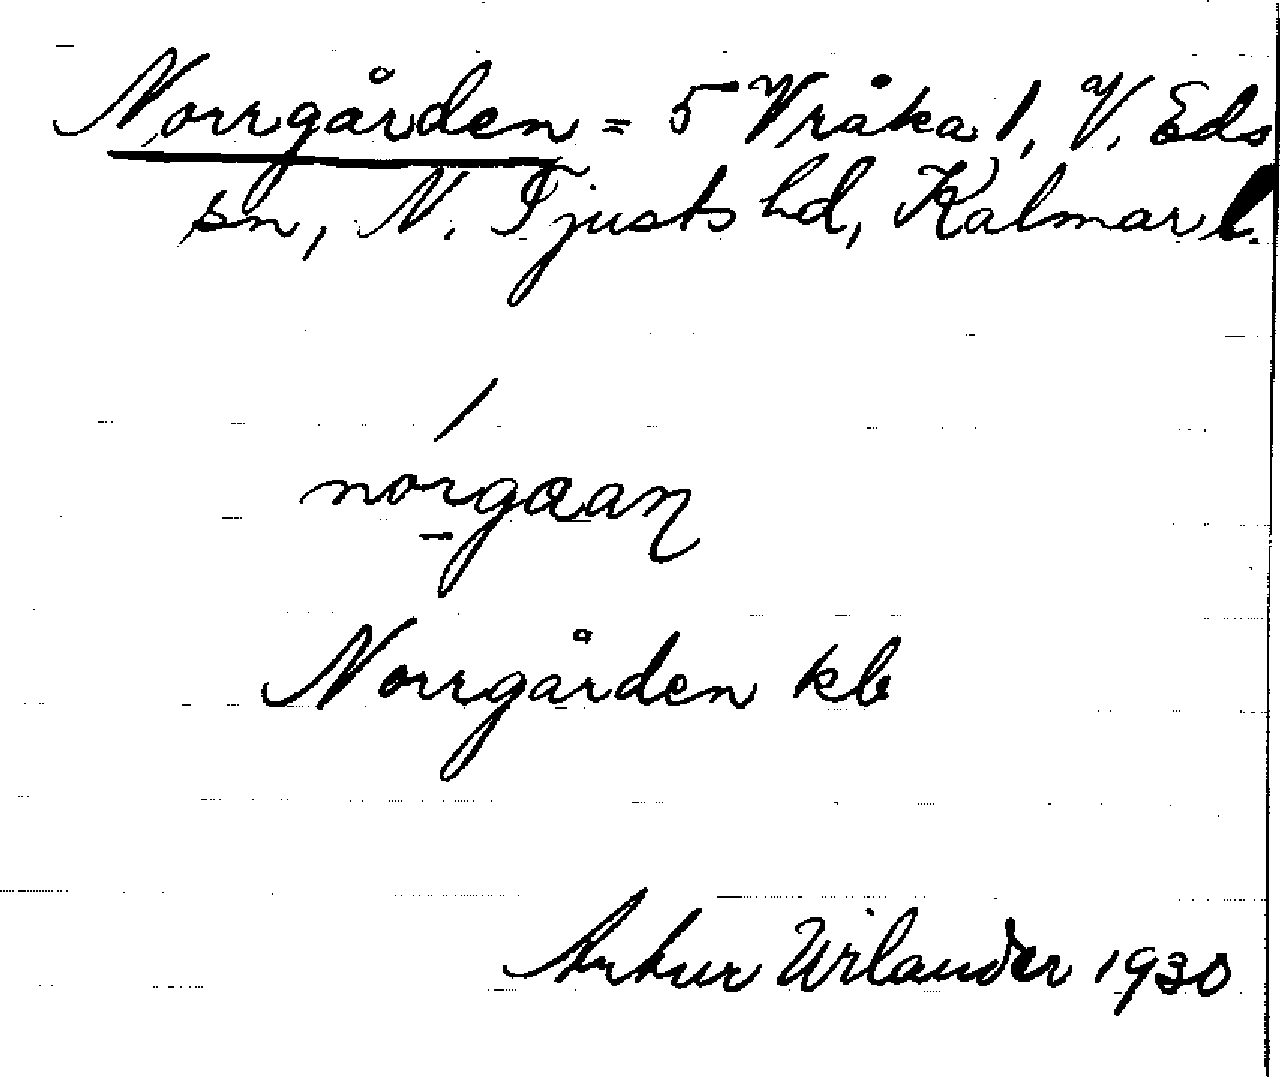 Norrgården = 5 Vråka 1, V. Eds
sn, N. Tjusts hd, Kalmar l.
nórgɑaɳ
Norrgården kb
Arthur Wilander 1930